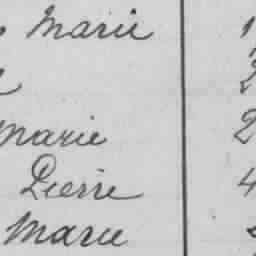 Marie 1
2
Marie 2
Pierre 4
Marie